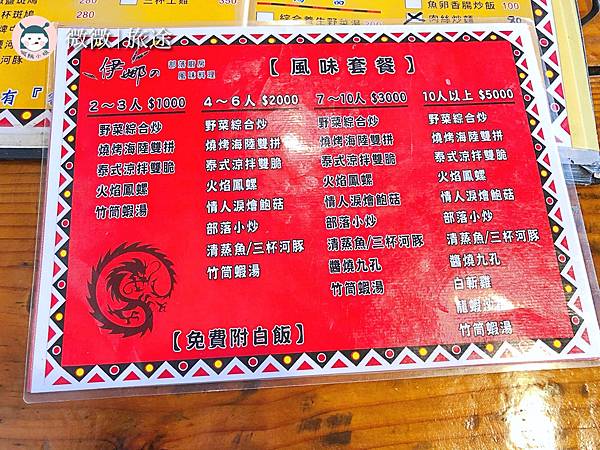 微微‧旅途
三杯土雞 350
杯斑鳩 280
280
綜合養生野菜湯
魚卵香腸炒飯
肉絲炒麵
有『
伊娜の 部落廚房
風味料理
【風味套餐】
2～3人 $1000
野菜綜合炒
燒烤海陸雙拼
泰式涼拌雙脆
火焰鳳螺
竹筒蝦湯
4～6人 $2000
野菜綜合炒
燒烤海陸雙拼
泰式涼拌雙脆
火焰鳳螺
情人淚燴鮑菇
部落小炒
清蒸魚/三杯河豚
竹筒蝦湯
7～10人 $3000
野菜綜合炒
燒烤海陸雙拼
泰式涼拌雙脆
火焰鳳螺
情人淚燴鮑菇
部落小炒
清蒸魚/三杯河豚
醬燒九孔
竹筒蝦湯
10人以上 $5000
野菜綜合炒
燒烤海陸雙拼
泰式涼拌雙脆
火焰鳳螺
情人淚燴鮑菇
部落小炒
清蒸魚/三杯河豚
醬燒九孔
白斬雞
龍蝦沙
竹筒蝦湯
【免費附白飯】